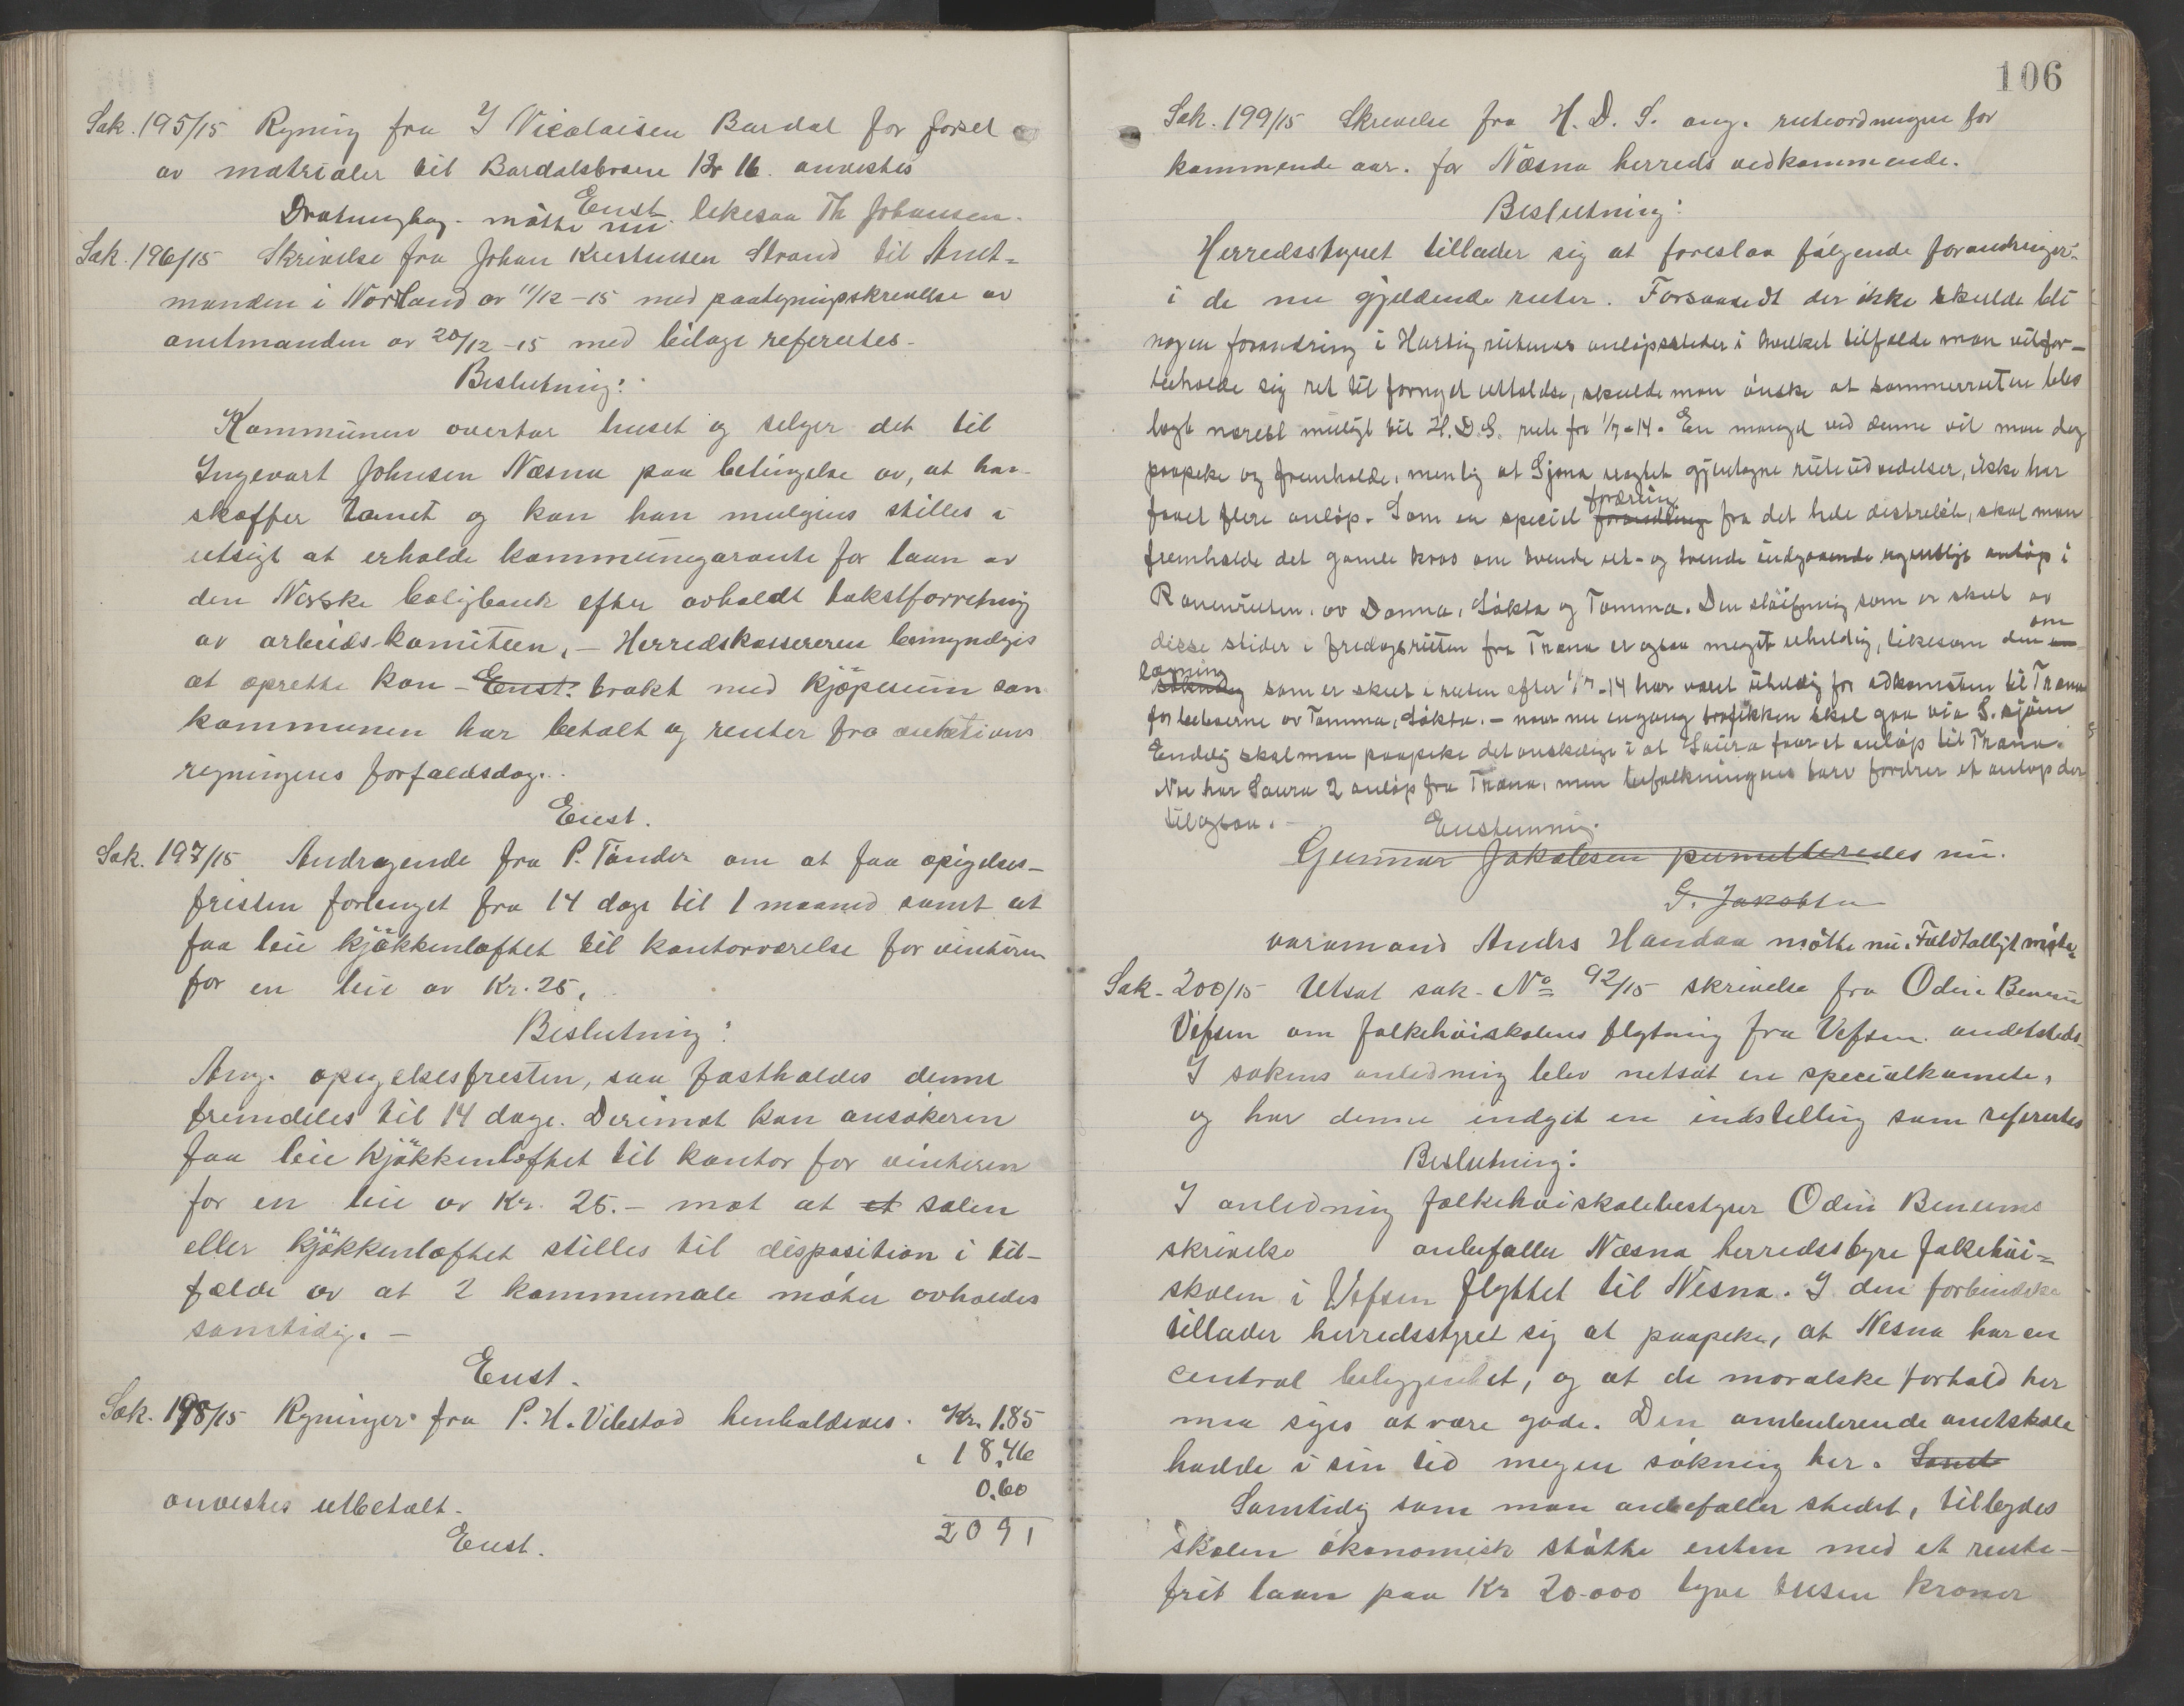 Sak. 195/15 Regning fra I Nicolaisen Bardal for forsel
av matrialer til Bardalsbroen Kr 16. anvistes
Enst.
Dratningbag. møtte nu. likesaa Th Johansen.
Sak. 196/15 Skrivelse fra Johan Kristensen Strand til Amt=
manden i Nordland av 11/12-15 med paategningskrivelse av
amtmanden av 20/12-15 med bilage refereretes.
Beslutning:
Kommunen overtar huset og selger det til
Ingevart Johnsen Næsna paa betingelse av, at han
skaffer tomt og kan han muligens stilles i
utsigt at erholde kommunegarante for laan av
den Norske boligbank efter avholdt takstforretning
av arbeids-komiteen, – Herredskassereren bemyndiges
at oprette kon- Enst. trakt med kjøpesum som
kommunen har betalt og renter fra auktions
regningens forfaldsdag.
Enst.
Sak. 197/15 Andragende fra P. Tønder om at faa opigelses-
fristen forlenget fra 14 dage til 1 maaned samt at
faa leie kjøkkenloftet til kontorværelse for vinteren
for en leie av Kr. 25,
Beslutning:
Ang. opsigelsesfristen, saa fastholdes denne
fremdeles til 14 dage. Derimot kan ansøkeren
faa leie kjøkkenloftet til kontor for vinteren
for en leie av Kr. 25.- mot at et salen
eller kjøkkenloftet stilles til disposition i til-
fælde av at 2 kommunale møter avholdes
samtidig. –
Enst.
Sak. 198/15 Regninger fra P. H. Vilestad henholdsvis. Kr. 1.85
18,46
0,60
anvistes utbetalt. 2091
Enst.
106
Sak. 199/15 Skrivelse fra H. D. S. ang. ruteordningen for
kommende aar. for Næsna herreds vedkommende.
Beslutning:
Herredsstyret tillader sig at foreslaa følgende forandringer
i de nu gjeldende ruter. Forsaavidt der ikke skulde bli
nogen forandring i Hurtigruternes anløpssteder i hvilket tilfælde man vil for-
beholde sig ret til fornyet uttalelse, skulde man ønske at sommerruten blev
lagt nærest muligt til H.D.S. rute fra 1/7-14. En mangel ved denne vil man dog
paapeke og fremholde, nemlig at Sjona uagtet gjentagne ruteudvidelser, ikke har
faaet flere anløp. Som en speciel forandling fra det hele distrikt, skal man
fremholde det gamle krav om tvende ut- og tvende indgaaende ugentlige anløp i
Ranenruten, av Dønna, Løkta og Tomma. Den sløifning som er skeet av
disse steder i fredagsruten fra Træna er ogsaa meget uheldig, likesom den om
lægning som er skeet i ruten efter 1/7-14 har været uheldig for adkomsten til Træna
for beboerne av Tomma, Løkta. – naar nu engang trafikken skal gaa via S.sjøen
Endelig skal man paapeke det ønskelige i at Saura faar et anløp til Træna.
Nu har Saura 2 anløp fra Træna, men befolkningens tarv fordrer et anløp der
til ogsaa. –
Enstemmig.
Gunnar Jakobsen permitteredes nu.
G. Jakobsen
varamand Anders Handaa møtte nu. Fuldtalligt møte.
Sak. 200/15 Utsat sak. No 92/15 skrivelse fra Odin Benum
Vefsen om folkehøiskolens flytning fra Vefsen andetsteds.
I sakens anledning blev netsat en specialkomite,
og har denne indgit en indstilling som refereretes
Beslutning:
I anledning folkehøiskolebestyrer Odin Benums
skrivelse anbefaller Næsna herredsstyre folkehøi=
skolen i Vefsen flyttet til Nesna. I den forbindelse
tillader herredsstyret sig at paapeke, at Nesna har en
central beliggenhet, og at de moralske forhold her
maa siges at være gode. Den ambulerende amtskole
hadde i sin tid megen søkning her. Samt
Samtidig som man anbefaller stedet, tilbydes
skolen økonomisk støtte enten med et rente-
frit laan paa Kr 20.000 tyve tusen kroner